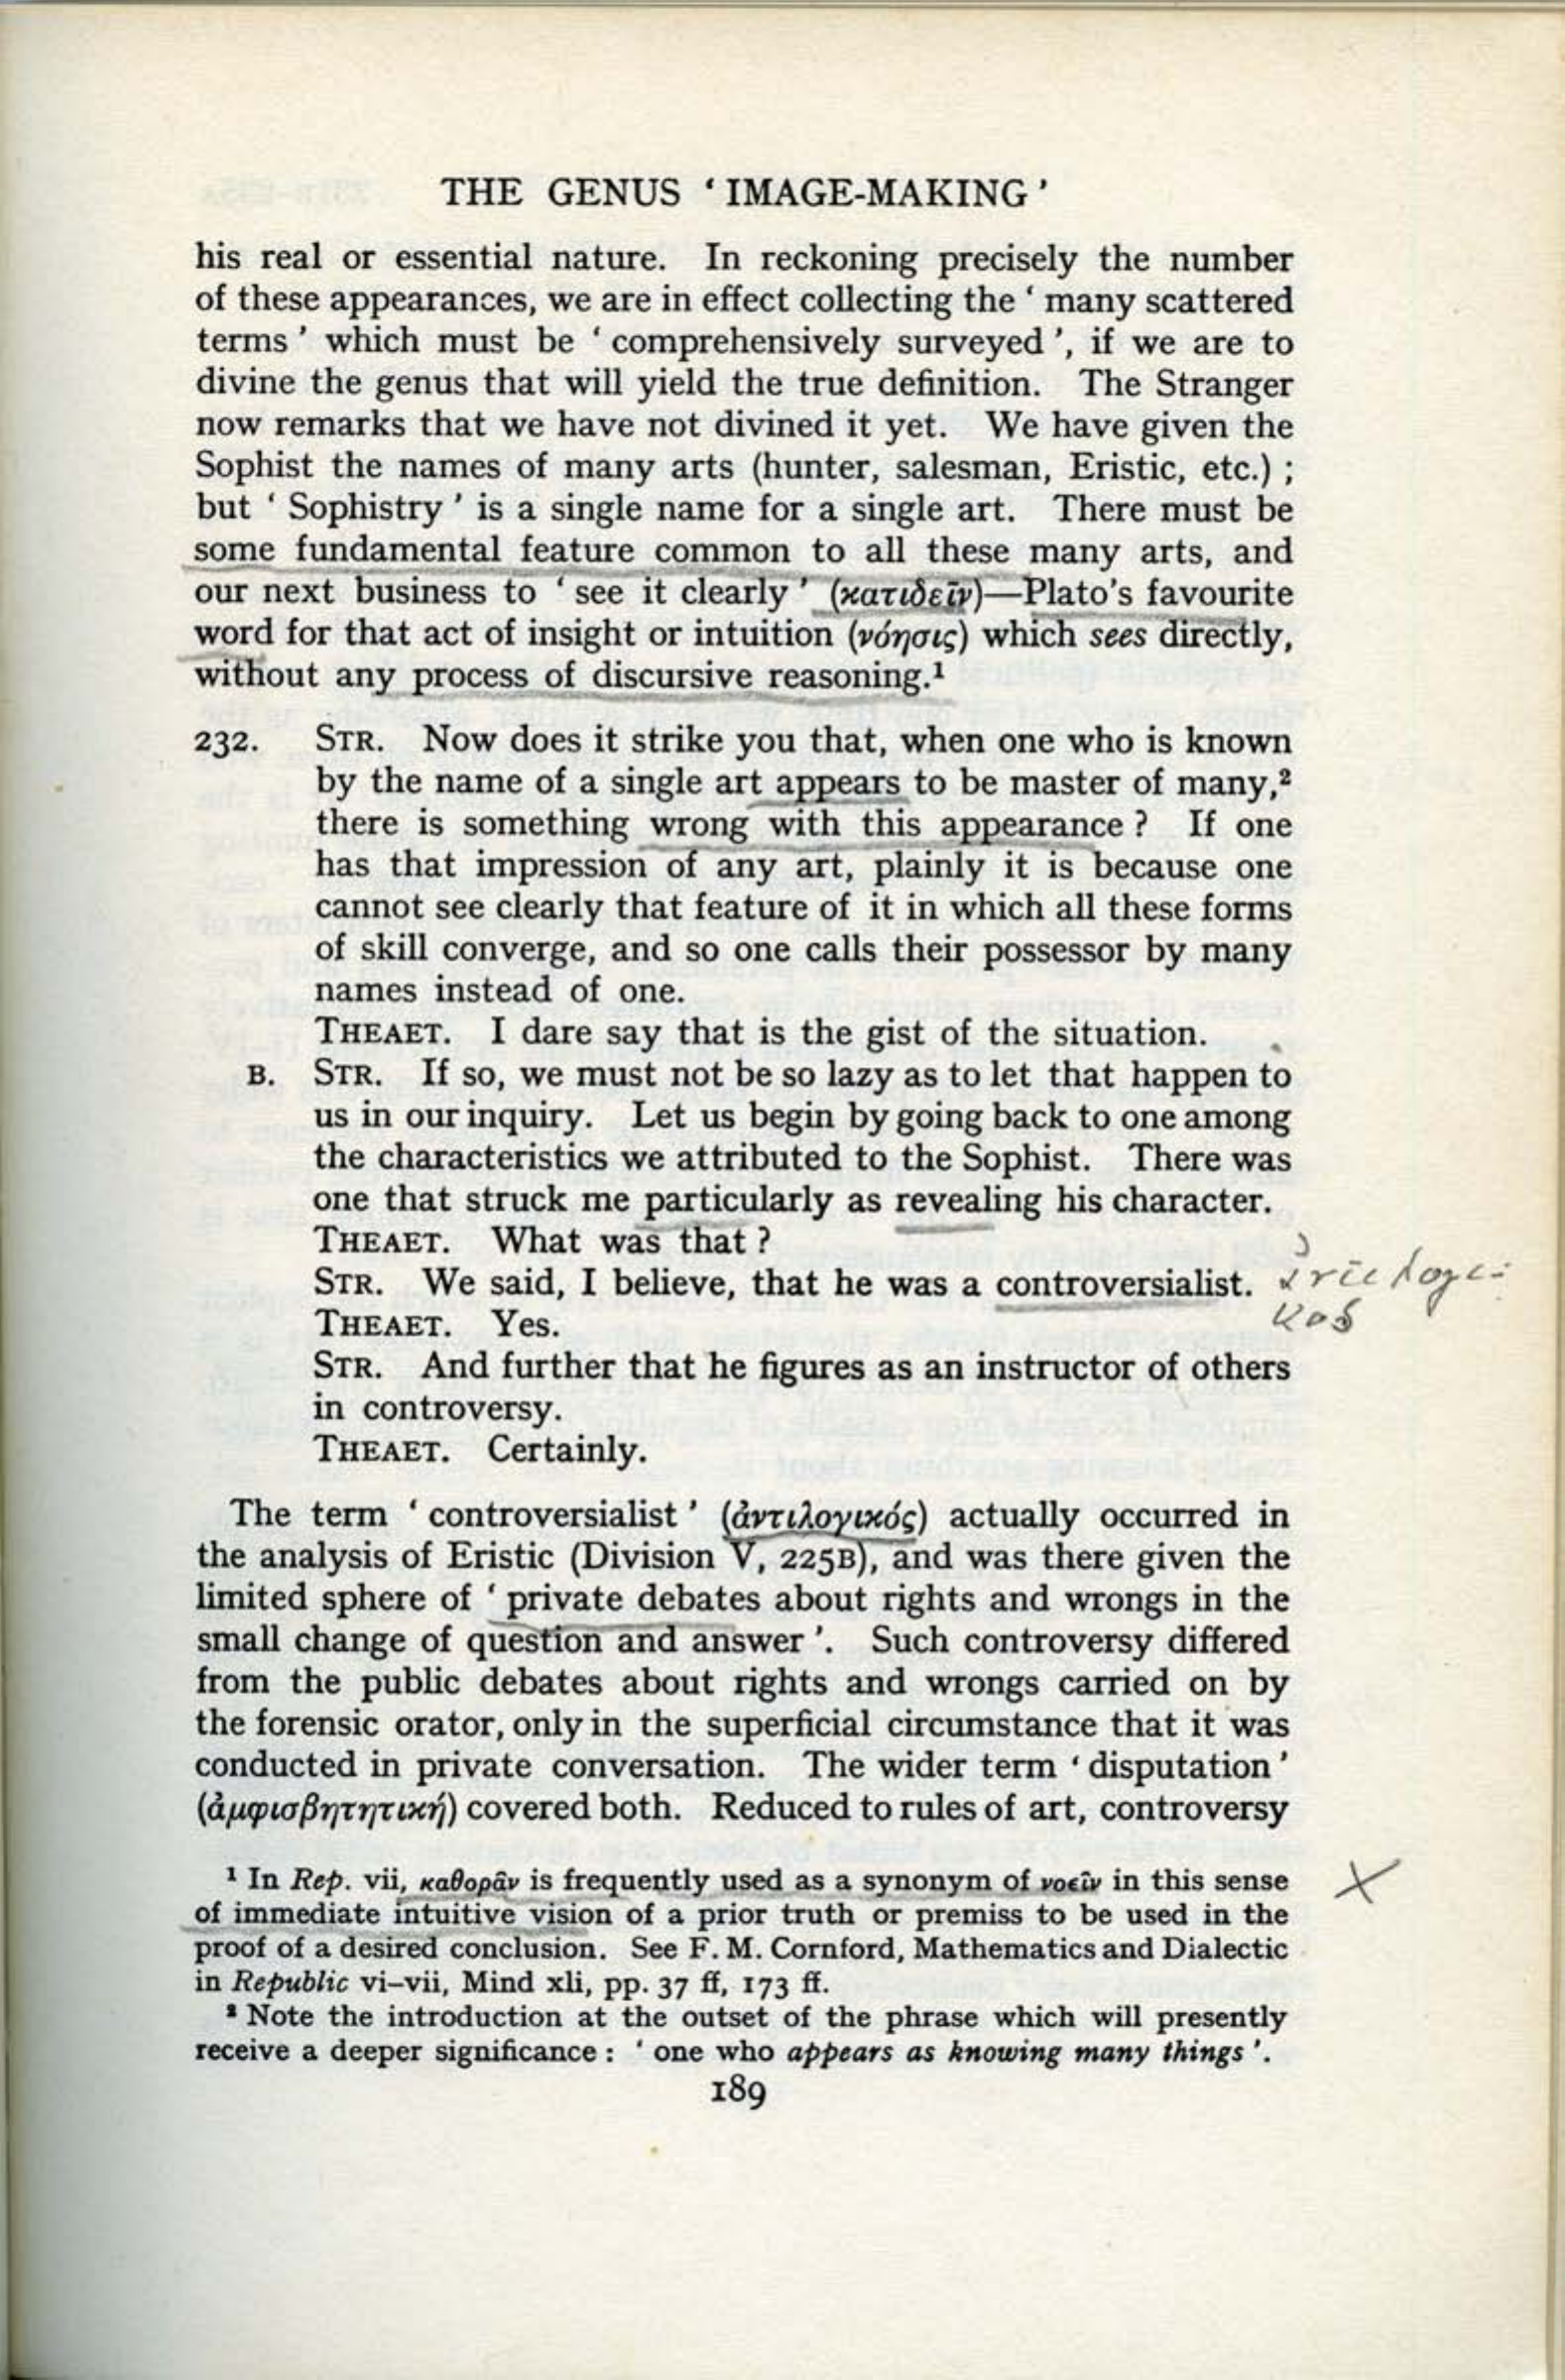 THE GENUS ‘ IMAGE-MAKING ’
his real or essential nature. In reckoning precisely the number
of these appearances, we are in effect collecting the ‘ many scattered
terms ’ which must be ‘ comprehensively surveyed ’, if we are to
divine the genus that will yield the true definition. The Stranger
now remarks that we have not divined it yet. We have given the
Sophist the names of many arts (hunter, salesman, Eristic, etc.) ;
but ‘ Sophistry ’ is a single name for a single art. There must be
some fundamental feature common to all these many arts, and
our next business to ‘ see it clearly ’ (κατιδεῖν)—Plato’s favourite
word for that act of insight or intuition (νόησις) which sees directly,
without any process of discursive reasoning.¹
232. STR. Now does it strike you that, when one who is known
by the name of a single art appears to be master of many,²
there is something wrong with this appearance ? If one
has that impression of any art, plainly it is because one
cannot see clearly that feature of it in which all these forms
of skill converge, and so one calls their possessor by many
names instead of one.
THEAET. I dare say that is the gist of the situation.
B. STR. If so, we must not be so lazy as to let that happen to
us in our inquiry. Let us begin by going back to one among
the characteristics we attributed to the Sophist. There was
one that struck me particularly as revealing his character.
THEAET. What was that ?
STR. We said, I believe, that he was a controversialist. ἀντιλογι-
κος
THEAET. Yes.
STR. And further that he figures as an instructor of others
in controversy.
THEAET. Certainly.
The term ‘ controversialist ’ (ἀντιλογικός) actually occurred in
the analysis of Eristic (Division V, 225B), and was there given the
limited sphere of ‘ private debates about rights and wrongs in the
small change of question and answer ’. Such controversy differed
from the public debates about rights and wrongs carried on by
the forensic orator, only in the superficial circumstance that it was
conducted in private conversation. The wider term ‘ disputation ’
(ἀμφισβητητική) covered both. Reduced to rules of art, controversy
¹ In Rep. vii, καθορᾶν is frequently used as a synonym of νοεῖν in this sense
of immediate intuitive vision of a prior truth or premiss to be used in the
proof of a desired conclusion. See F. M. Cornford, Mathematics and Dialectic
in Republic vi–vii, Mind xli, pp. 37 ff, 173 ff.
² Note the introduction at the outset of the phrase which will presently
receive a deeper significance : ‘ one who appears as knowing many things ’.
189